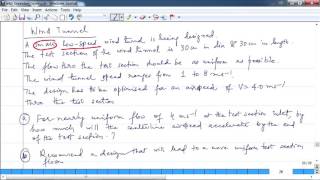 Wind Tunnel
A small low-speed wind tunnel is being designed.
The test section of the wind tunnel is 30 cm in dia & 30 cm in length.
The flow thro the test section should be as uniform as possible
The wind tunnel speed ranges from 1 to 8 ms⁻¹
The design has to be optimised for an airspeed of V = 4.0 ms⁻¹
thro the test section
a) For nearly uniform flow of 4 ms⁻¹ at the test section inlet, by
how much will the centerline airspeed accelerate by the end
of the test section?
b) Recommend a design that will lead to a more uniform test section
flow.